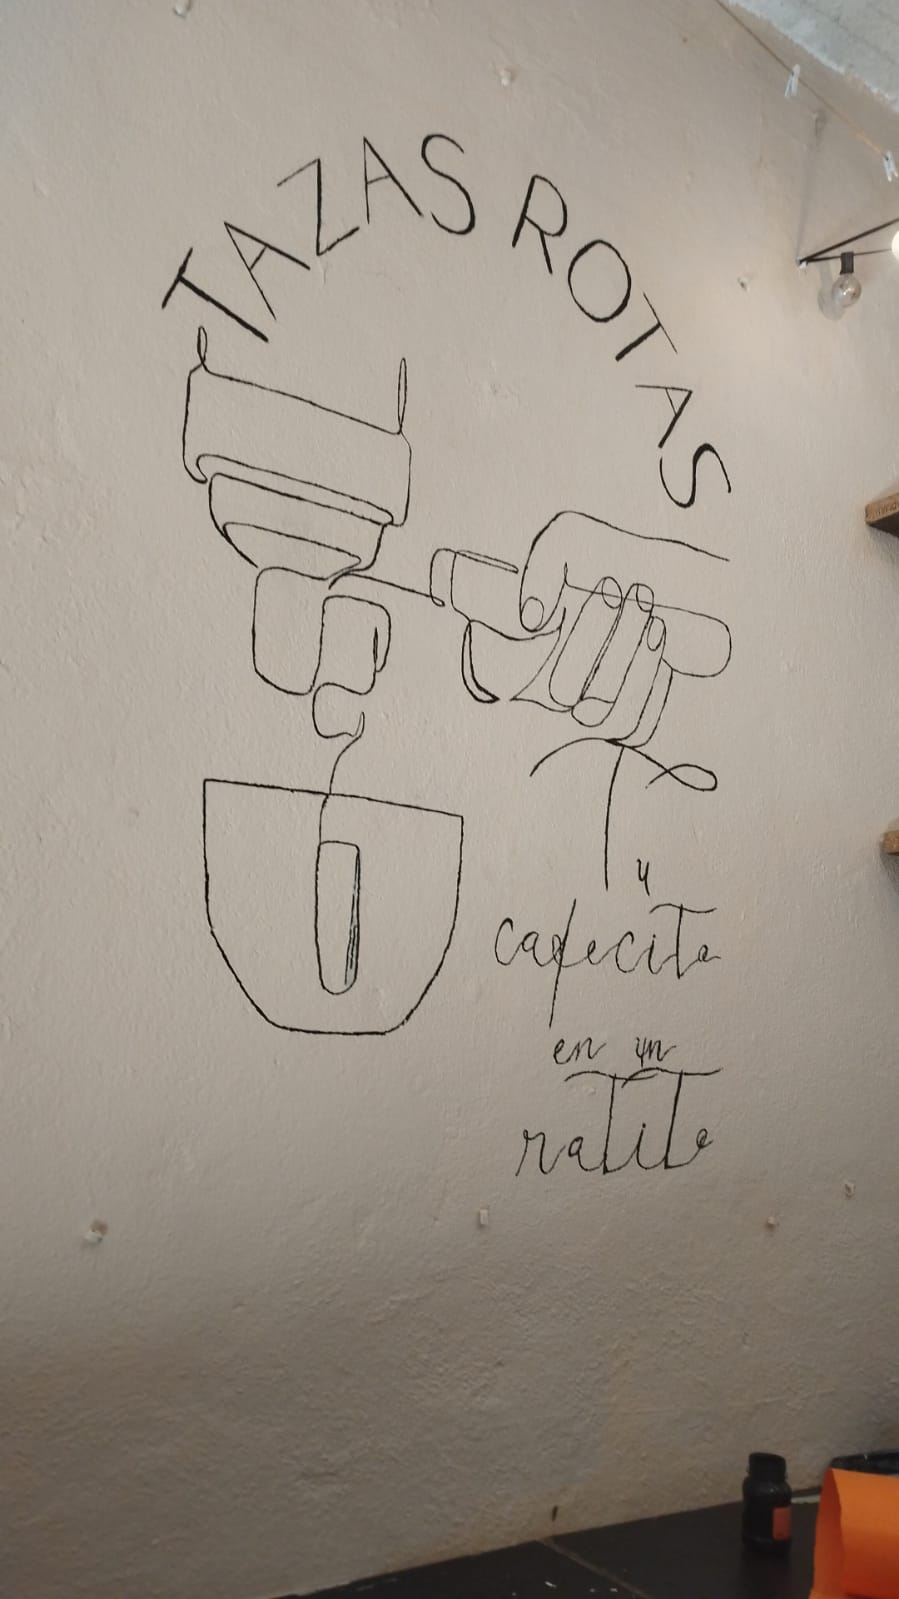 TAZAS ROTAS
T y
cafecito
en un
ratito